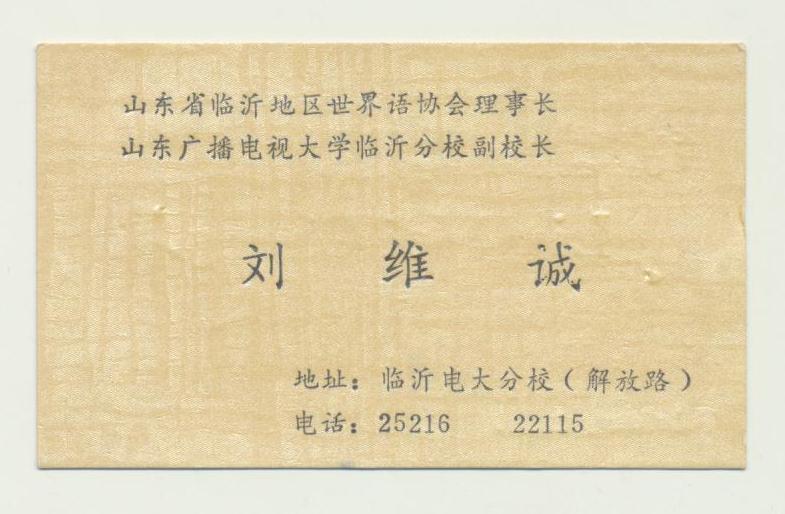 山东省临沂地区世界语协会理事长
山东广播电视大学临沂分校副校长
刘 维 诚
地址：临沂电大分校（解放路）
电话：25216 22115